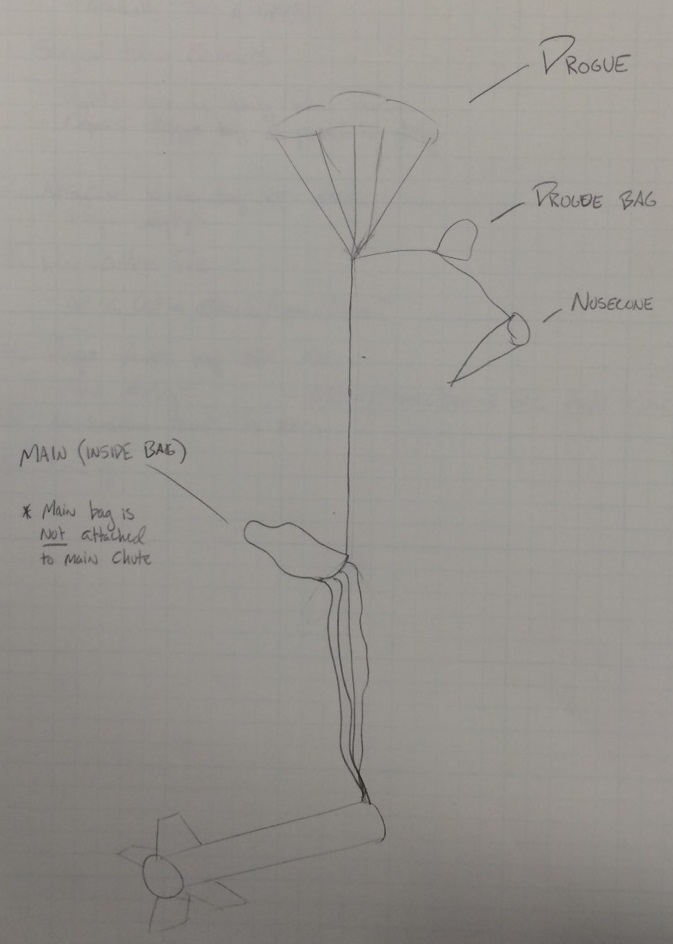 DROGUE
DROGUE BAG
NOSECONE
MAIN (INSIDE BAG)
* Main bag is
NOT attached
to main chute